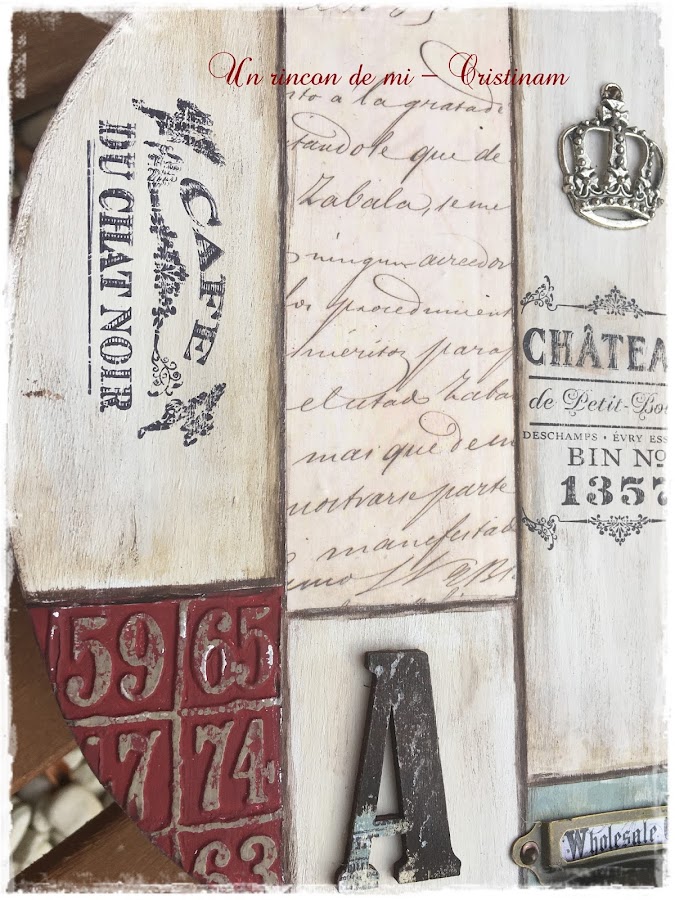 Un rincon de mi – Cristinam
CAFE
DU CHAT NOIR
to a la gratadi
tandole que de
Zabala, se me
ningun acreedor
los procedimient
meritos para
el citad Zaba
mas que dem
nostrarse parte
manifestad
CHÂTEA
de Petit-Bo
DESCHAMPS · EVRY ESS
BIN Nº
1357
59 65
7 74
63
A
Wholesale